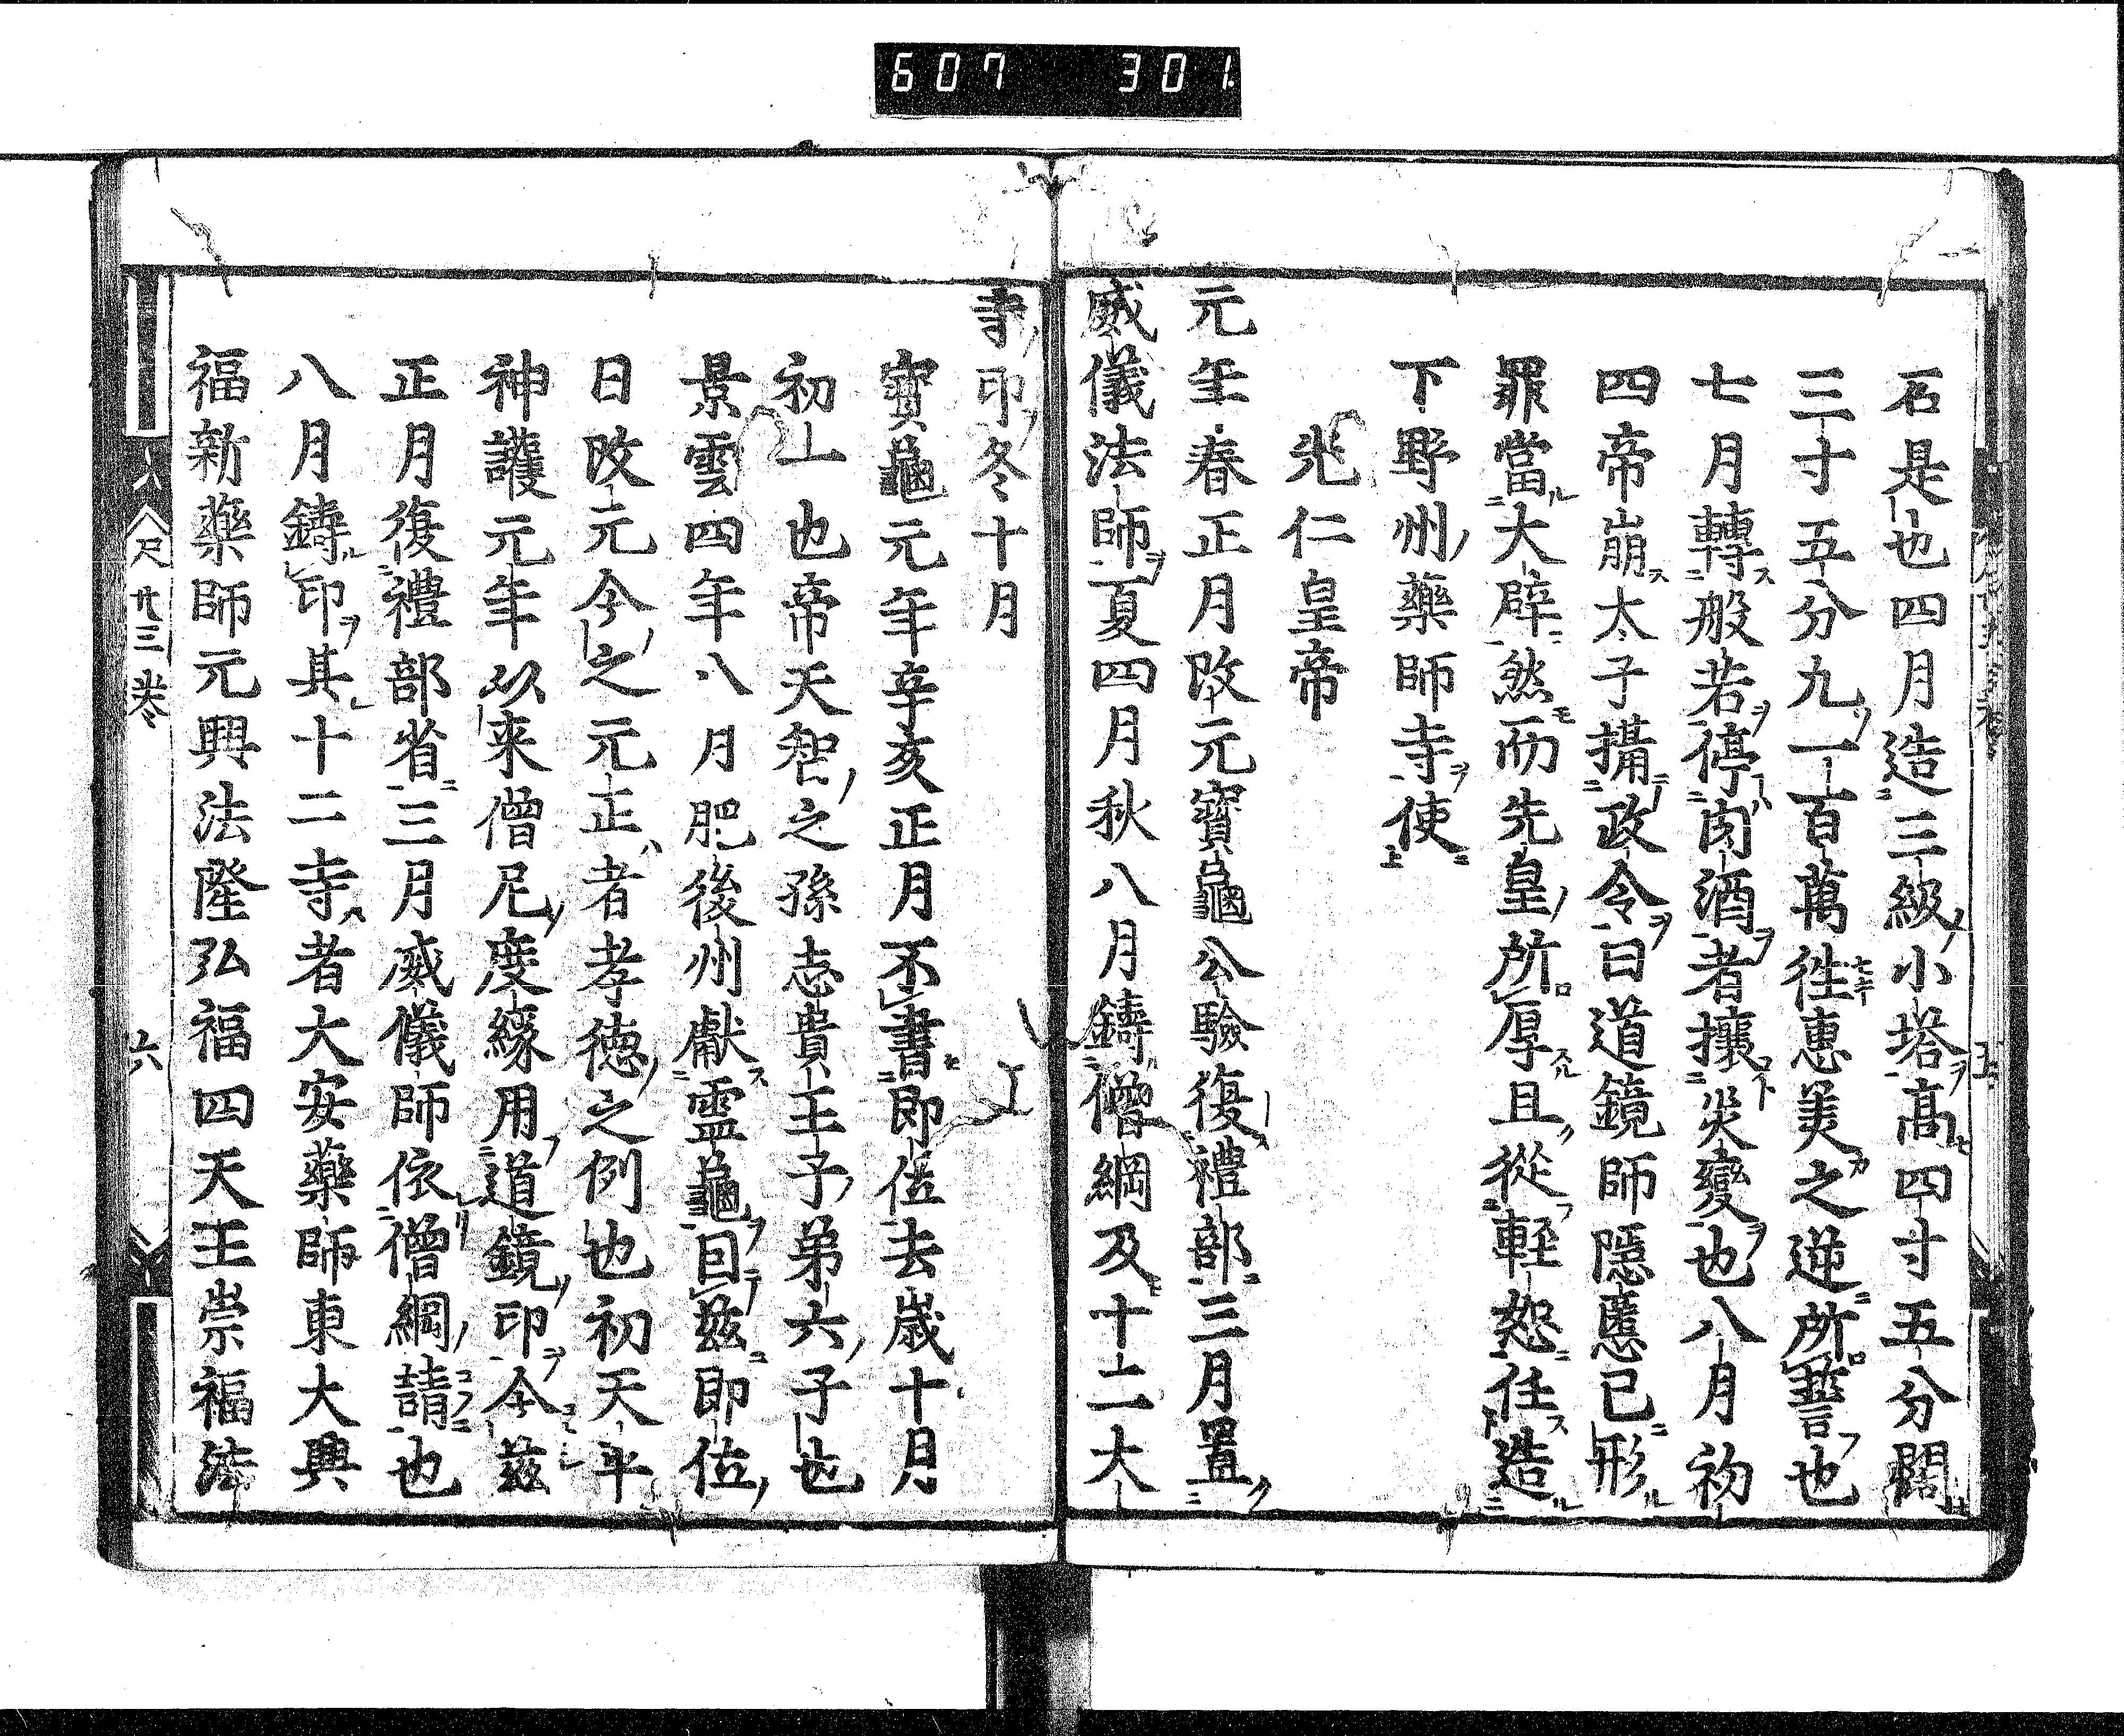 607 301
石是也四月造三級小塔高四寸五分闊
三寸五分九一百萬徃惠美之逆所誓也
七月轉般若停肉酒者攘災變也八月初
四帝崩太子攝政令曰道鏡師隱慝已形
罪當大辟然而先皇所厚且從輕恕任造
下野州藥師寺使
光仁皇帝
元年春正月改元寶龜公驗復禮部三月置
威儀法師夏四月秋八月鑄僧綱及十二大
寺印冬十月
寶龜元年辛亥正月不書即位去歲十月
初一也帝天智之孫志貴王子弟六子也
景雲四年八月肥後州獻靈龜因茲即位
日改元今之元正者孝德之例也初天平
神護元年以来僧尼度緣用道鏡印今茲
正月復禮部省三月威儀師依僧綱請也
八月鑄印其十二寺者大安藥師東大興
福新藥師元興法隆弘福四天王崇福法
尺廿三卷
六